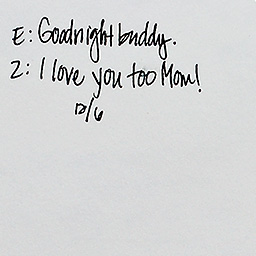 E: Goodnight buddy.
Z: I love you too Mom!
12/6